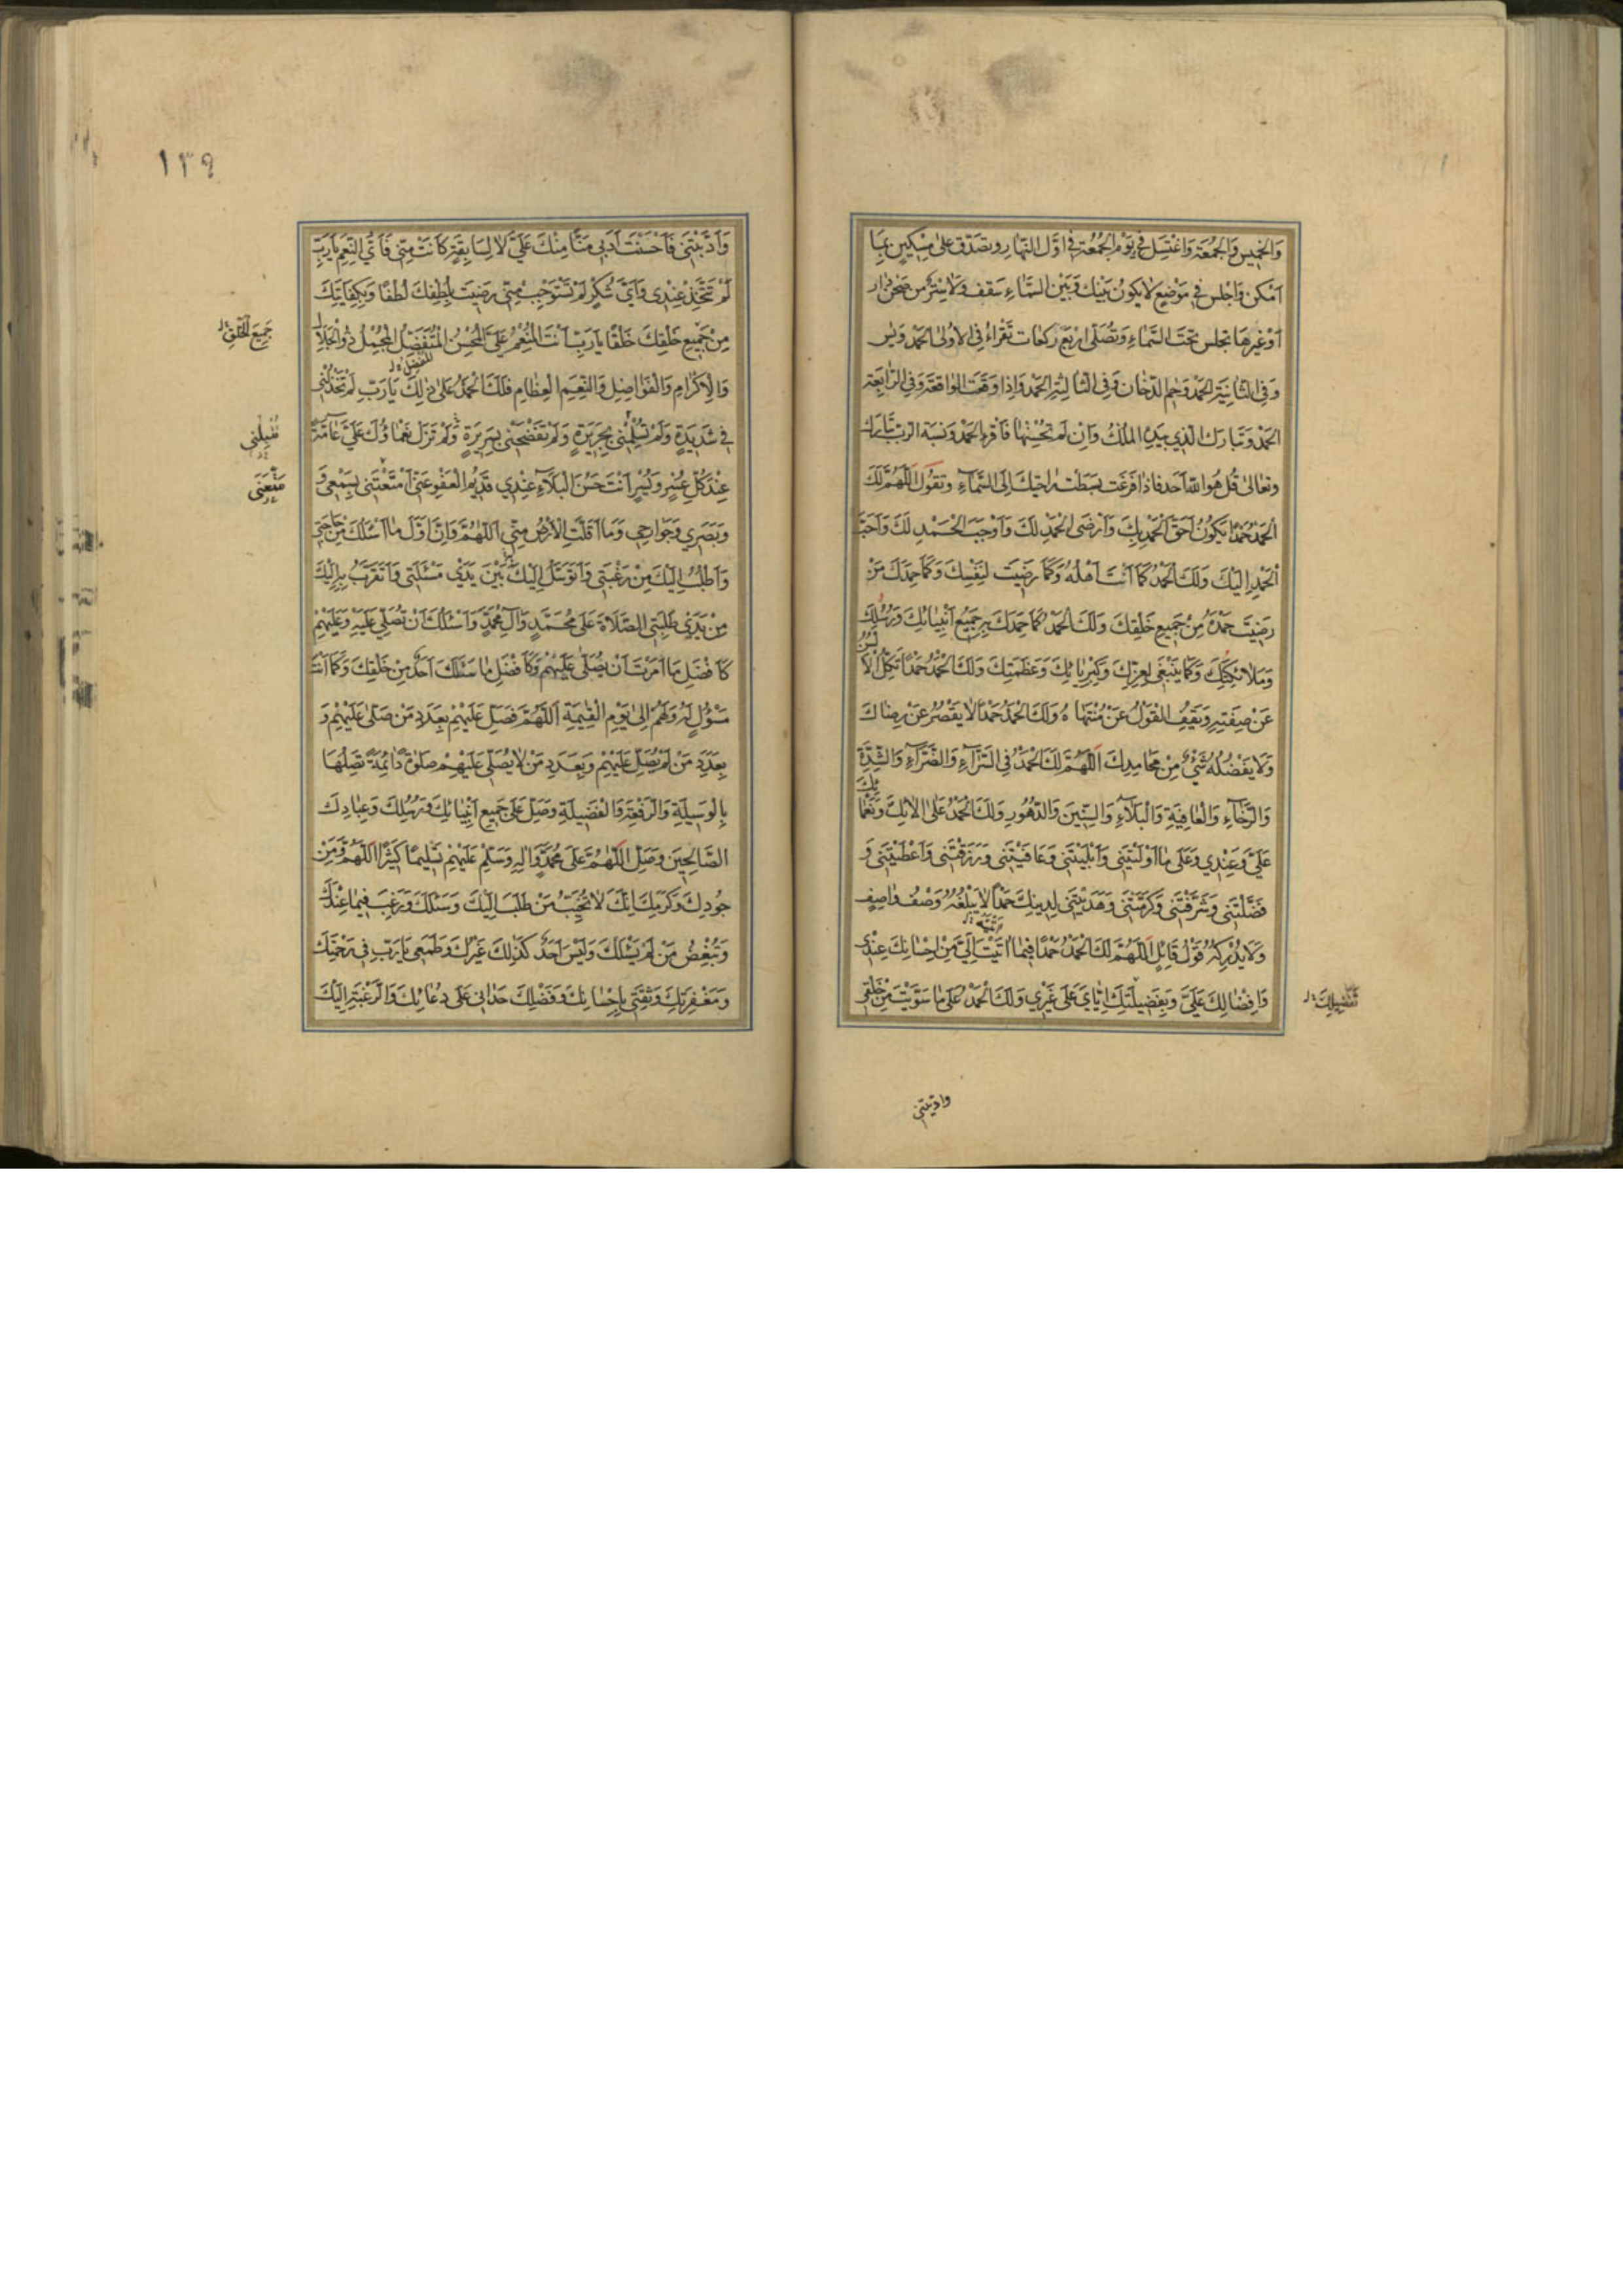 وَالخَمِيسِ وَالجُمُعَةِ وَاغْتَسِل فِي يَوْمِ الجُمُعَةِ فِي اَوَّلِ النَّهَارِ وَتصَدَّق عَلىٰ مِسْكِينٍ بِمَا
اَمْكَن وَاجْلِس فِي مَوْضِعٍ لَا يَكُونُ بَيْنَكَ وَبَيْنَ السَّمَاءِ سَقف وَلَا سِتْر مِن صَحْنِ دَار
اَوْ غَيرِهَا تجلس تَحْتَ السَّمَاءِ وَتُصَلّى اَرْبَع رَكعَات تَقْرَاءُ فِي الاُولىٰ الحَمْد وَيٰس
وَفِي الثَّانِيَةِ الحَمْد وَحٰم الدّخَان وَفِي الثَّالِثَةِ الحَمْد وَاِذَا وَقَعَت الوَاقعَة وَفِي الرَّابِعَةِ
الحَمْد وَتَبَارَك الَّذِي بِيَدِهِ المُلْكُ وَاِن لَم تُحْسِنْهَا فَاقرءِ الحَمْد وَنسْبَة الربّ تَبَارَك
وَتَعَالىٰ قُل هُوَ اللّٰه اَحَد فَاِذَا فَرَغت بَسَطْتَ رَاحَتَيْكَ اِلَى السَّمَاءِ وَتقُولُ اَللّٰهُمَّ لَكَ
الحَمْدُ حَمْدًا يَكُونُ اَحَقَّ الحَمْدِ بِكَ وَاَرْضَى الحَمْدِ لَكَ وَاَوْجَبَ الحَمْدِ لَكَ وَاَحَبَّ
الْحَمْدِ اِلَيْكَ وَلَكَ الحَمْدُ كَمَا اَنْتَ اَهْلُهُ وَكَمَا رَضِيتَ لِنَفْسِكَ وَكَمَا حَمِدَكَ مَنْ
رَضِيتَ حَمْدَهُ مِنْ جَمِيعِ خَلْقِكَ وَلَكَ الحَمْدُ كَمَا حَمِدَكَ بِهِ جَمِيعُ اَنْبِيَائِكَ وَرُسُلِكَ
وَمَلَائِكَتِكَ وَكَمَا يَنْبَغِي لِعِزِّكَ وَكِبْرِيَائِكَ وَعَظَمَتِكَ وَلَكَ الْحَمْدُ حَمْدًا تَكِلُّ الْاَلْسُنُ
عَنْ صِفَتِهِ وَيَقِفُ القَوْلُ عَنْ مُنْتَهَاهُ وَلَكَ الحَمْدُ حَمْدًا لَا يَقْصُرُ عَنْ رِضَاكَ
وَلَا يَفْضُلُهُ شَيْءٌ مِنْ مَحَامِدِكَ اَللّٰهُمَّ لَكَ الْحَمْدُ فِي السَّرَّاءِ وَالضَّرَّاءِ وَالشِّدَّةِ
وَالرَّخَاءِ وَالْعَافِيَةِ وَالْبَلَاءِ وَالسِّنِينَ وَالدُّهُورِ وَلَكَ الْحَمْدُ عَلىٰ الٰائِكَ وَنَعْمَائِكَ
عَلَيَّ وَعِنْدِي وَعَلىٰ مَا اَوْلَيْتَنِي وَاَبْلَيْتَنِي وَعَافَيْتَنِي وَرَزَقْتَنِي وَاَعْطَيْتَنِي وَ
فَضَّلْتَنِي وَشَرَّفْتَنِي وَكَرَّمْتَنِي وَهَدَيْتَنِي لِدِينِكَ حَمْدًا لَا يَبْلُغُهُ وَصْفُ وَاصِفٍ
وَلَا يُدْرِكُهُ قَوْلُ قَائِلٍ اَللّٰهُمَّ لَكَ الْحَمْدُ حَمْدًا فِيمَا اٰتَيْتَ اِلَيَّ مِنْ اِحْسَانِكَ عِنْدِي
وَاِفْضَالِكَ عَلَيَّ وَبِفَضِيلَتِكَ اِيَّايَ عَلىٰ غَيْرِي وَلَكَ الحَمْدُ عَلىٰ مَا سَوَّيْتَ مِنْ خَلْقِي
تَفْضِيلِكَ
وادّبتني
١٣٩
وَاَدَّبْتَنِي فَاَحْسَنْتَ اَدَبِي مَنًّا مِنْكَ عَلَيَّ لَا لِسَابِقَةٍ كَانَتْ مِنِّي فَاَيَّ النِّعَمِ يَا رَبِّ
لَمْ تَتَّخِذْ عِنْدِي وَاَيَّ شُكْرٍ لَمْ تَسْتَوْجِبْ مِنِّي رَضِيتَ بِلُطْفِكَ لُطْفًا وَبِكِفَايَتِكَ
مِنْ جَمِيعِ خَلْقِكَ خَلْقًا يَا رَبِّ اَنْتَ المُنْعِمُ عَلَيَّ المُحْسِنُ المُتَفَضِّلُ المُجْمِلُ ذُو الْجَلَالِ
جَمِيعِ الْخَلْقِ
وَالْاِكْرَامِ وَالْفَوَاضِلِ وَالنِّعَمِ الْعِظَامِ فَلَكَ الْحَمْدُ عَلىٰ ذٰلِكَ يَا رَبِّ لَمْ تَخْذُلْنِي
فِي شَدِيدَةٍ وَلَمْ تُسْلِمْنِي بِجَرِيرَةٍ وَلَمْ تَفْضَحْنِي بِسَرِيرَةٍ وَلَمْ تَزَلْ نَعْمَاؤُكَ عَلَيَّ عَامَّةً
عِنْدَ كُلِّ عُسْرٍ وَيُسْرٍ اَنْتَ حَسَنُ الْبَلَاءِ عِنْدِي قَدِيمُ الْعَفْوِ عَنِّي اَمْتَعْتَنِي بِسَمْعِي وَ
مَتِّعْنِي
وَبَصَرِي وَجَوَارِحِي وَمَا اَقَلَّتِ الْاَرْضُ مِنِّي اَللّٰهُمَّ وَاِنَّ اَوَّلَ مَا اَسْئَلُكَ مِنْ حَاجَتِي
وَاَطْلُبُ اِلَيْكَ مِنْ رَغْبَتِي وَاَتَوَسَّلُ اِلَيْكَ بِهِ بَيْنَ يَدَيْ مَسْئَلَتِي وَاَتَقَرَّبُ بِهِ اِلَيْكَ
مِنْ يَدَيْ طَلِبَتِي الصَّلَاةَ عَلىٰ مُحَمَّدٍ وَآلِ مُحَمَّدٍ وَاَسْئَلُكَ اَنْ تُصَلِّيَ عَلَيْهِ وَعَلَيْهِمْ
كَاَفْضَلِ مَا اَمَرْتَ اَنْ يُصَلّٰى عَلَيْهِمْ وَكَاَفْضَلِ مَا سَئَلَكَ اَحَدٌ مِنْ خَلْقِكَ وَكَمَا اَنْتَ
مَسْؤُلٌ لَهُ وَلَهُمْ اِلىٰ يَوْمِ الْقِيٰمَةِ اَللّٰهُمَّ فَصَلِّ عَلَيْهِمْ بِعَدَدِ مَنْ صَلّٰى عَلَيْهِمْ وَ
بِعَدَدِ مَنْ لَمْ يُصَلِّ عَلَيْهِمْ وَبِعَدَدِ مَنْ لَا يُصَلِّي عَلَيْهِمْ صَلٰوةً دَائِمَةً تَصِلُهَا
بِالْوَسِيلَةِ وَالرِّفْعَةِ وَالْفَضِيلَةِ وَصَلِّ عَلىٰ جَمِيعِ اَنْبِيَائِكَ وَرُسُلِكَ وَعِبَادِكَ
الصَّالِحِينَ وَصَلِّ اَللّٰهُمَّ عَلىٰ مُحَمَّدٍ وَاٰلِهِ وَسَلِّمْ عَلَيْهِمْ تَسْلِيمًا كَثِيرًا اَللّٰهُمَّ وَمِنْ
جُودِكَ وَكَرَمِكَ اَنَّكَ لَا تُخَيِّبُ مَنْ طَلَبَ اِلَيْكَ وَسَئَلَكَ وَرَغِبَ فِيمَا عِنْدَكَ
وَتُبْغِضُ مَنْ لَمْ يَسْئَلْكَ وَلَيْسَ اَحَدٌ كَذٰلِكَ غَيْرُكَ وَطَمَعِي يَا رَبِّ فِي رَحْمَتِكَ
وَمَغْفِرَتِكَ وَثِقَتِي بِاِحْسَانِكَ وَفَضْلِكَ حَدَانِي عَلىٰ دُعَائِكَ وَالرَّغْبَةِ اِلَيْكَ